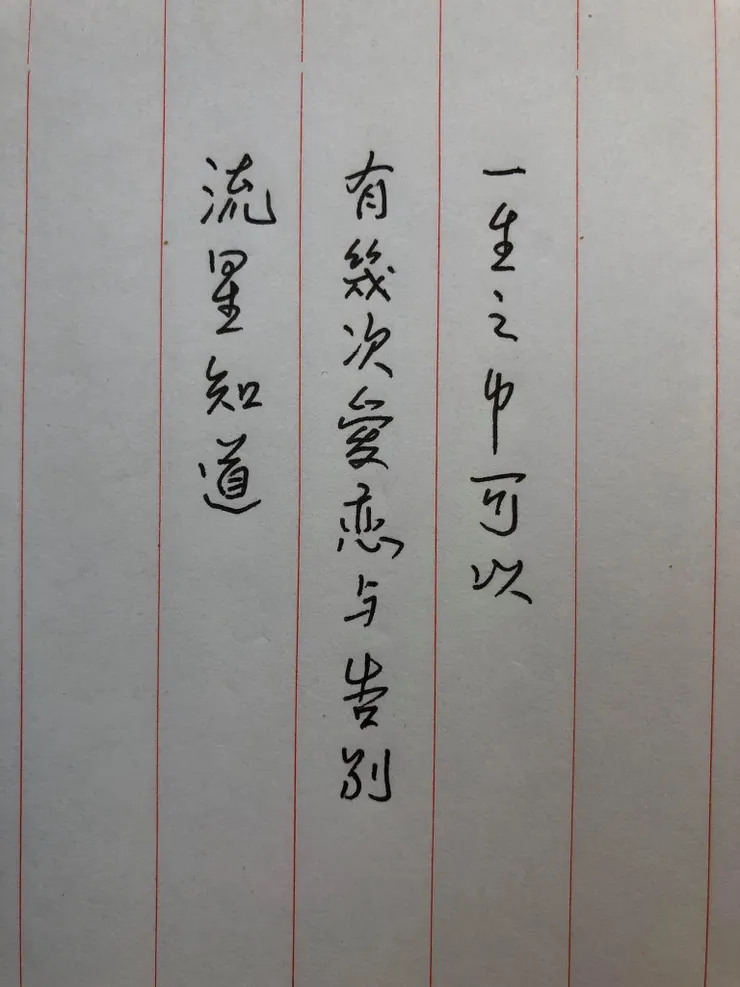 一生之中可以
有幾次愛恋与告别
流星知道